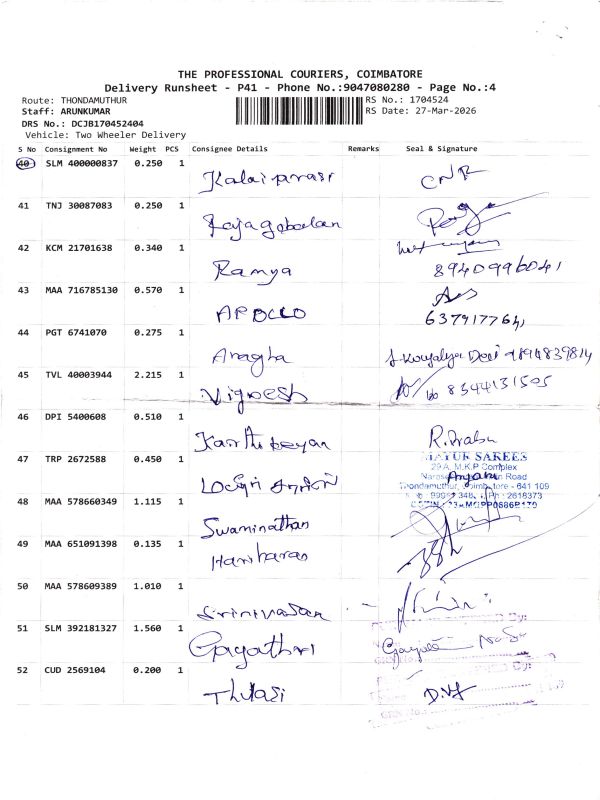 THE PROFESSIONAL COURIERS, COIMBATORE
Delivery Runsheet - P41 - Phone No.:9047080280 - Page No.:4
Route: THONDAMUTHUR
RS No.: 1704524
Staff: ARUNKUMAR
RS Date: 27-Mar-2026
DRS No.: DCJB170452404
Vehicle: Two Wheeler Delivery
S No Consignment No Weight PCS Consignee Details Remarks Seal & Signature
40 SLM 400000837 0.250 1 Kalaiarasi CNR
41 TNJ 30087083 0.250 1 Rajagobalan
42 KCM 21701638 0.340 1 Ramya 8940996041
43 MAA 716785130 0.570 1 APOLLO
44 PGT 6741070 0.275 1 Anagha
45 TVL 40003944 2.215 1 Vignesh 8344131505
46 DPI 5400608 0.510 1 Karthikeyan R.Prabu
47 TRP 2672588 0.450 1
MAYUR SAREES
29 A, M.K.P Complex
Road
Thondamuthur, Coimbatore - 641 109
48 MAA 578660349 1.115 1 Swaminathan
49 MAA 651091398 0.135 1 Hariharan
50 MAA 578609389 1.010 1 Srinivasan
51 SLM 392181327 1.560 1 Gayathri
52 CUD 2569104 0.200 1 Thulasi